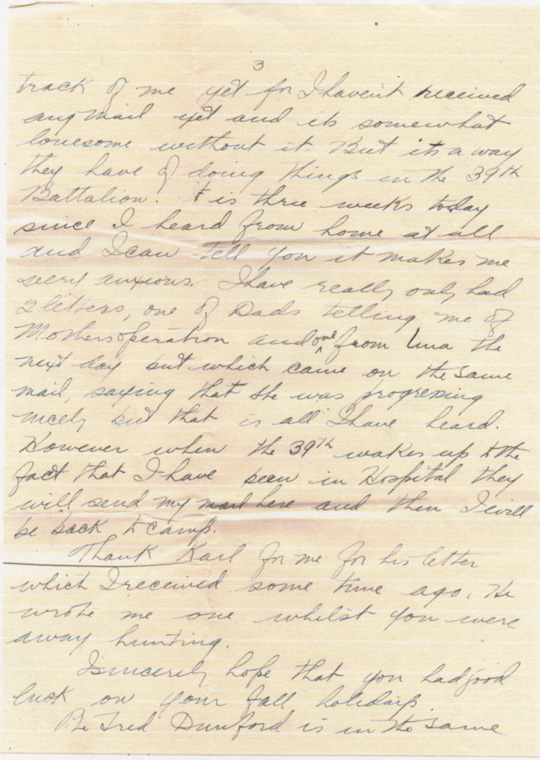 3
track of me yet for I haven't received
any mail yet and its somewhat
lonesome without it. But its a way
they have of doing things in the 39th
Battalion. It is three weeks today
since I heard from home at all
and I can tell you it makes me
very anxious. I have really only had
2 letters, one of Dads telling me of
Mothers operation and one from Una the
next day but which came on the same
mail, saying that she was progressing
nicely but that is all I have heard.
However when the 39th wakes up to the
fact that I have been in Hospital they
will send my mail here and then I will
be back to camp.
Thank Karl for me for his letter
which I received some time ago. He
wrote me one whilst you were
away hunting.
I sincerely hope that you had good
luck on your fall holidays.
Fred Dunford is in the same